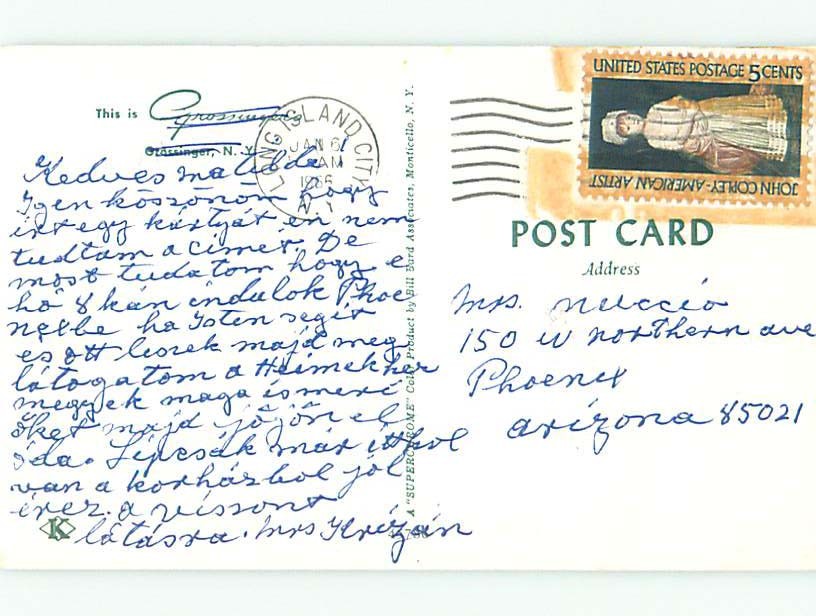 This is Grossinger's
Grossinger, N. Y.
LONG ISLAND CITY
JAN 6
AM
1966
N. Y.
Kedves matilda
Igen köszönöm hogy
irt egy kártyát én nem
tudtam a cimét. De
most tudatom hogy e
hó 8 kán indulok Phoe
nexbe ha Isten segit
és ott leszek majd meg
látogatom a Heimekhez
megyek maga ismeri
őket majd jöjön el
oda. Lipcsák már itthol
van a korházbol jól
érez. a vissont
látásra. Mrs Krizán
K
A "SUPERCHROME" Color Product by Bill Bard Associates, Monticello, N. Y.
UNITED STATES POSTAGE 5 CENTS
JOHN COPLEY - AMERICAN ARTIST
POST CARD
Address
Mrs. Nuccio
150 W northern ave
Phoenex
arizona 85021